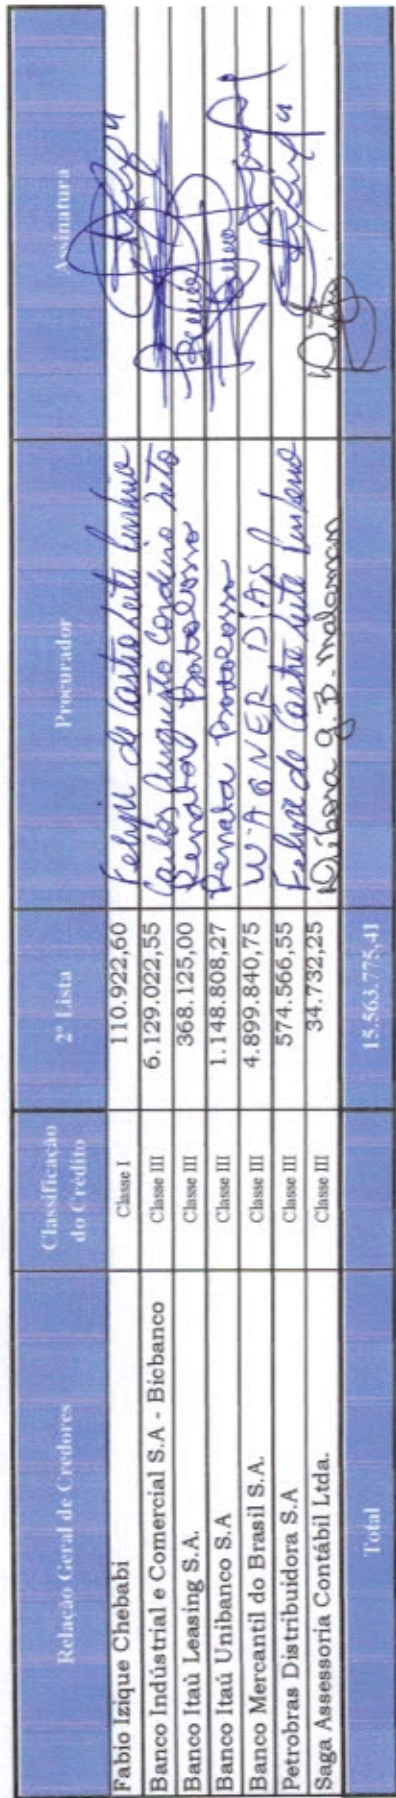 Relação Geral de Credores Classificação do Crédito 2ª Lista Procurador Assinatura
Fabio Izique Chebabi Classe I 110.922,60 Felipe de Castro Leite Pinheiro
Banco Indústrial e Comercial S.A - Bicbanco Classe III 6.129.022,55 Carlos Augusto Cordeiro Neto
Banco Itaú Leasing S.A. Classe III 368.125,00 Renata Bortolosso
Banco Itaú Unibanco S.A Classe III 1.148.808,27 Renata Bortolosso
Banco Mercantil do Brasil S.A. Classe III 4.899.840,75 WAGNER DIAS
Petrobras Distribuidora S.A Classe III 574.566,55 Felipe de Castro Leite Pinheiro
Saga Assessoria Contábil Ltda. Classe III 34.732,25 Débora G. B.
Total 15.563.775,41